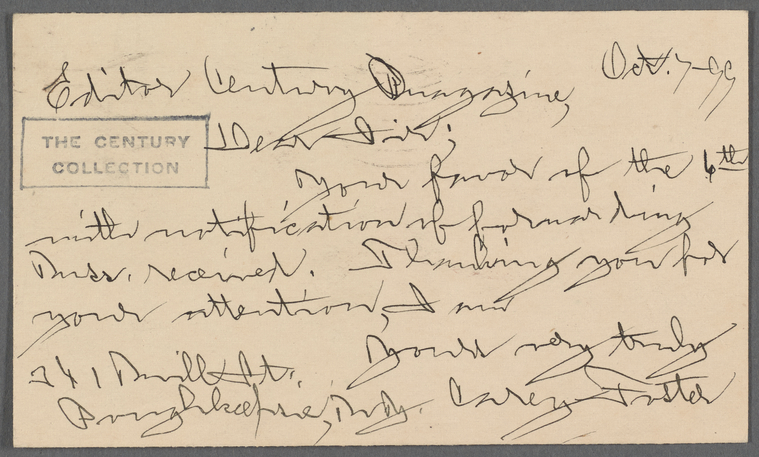 Oct. 7-99
Editor Century Magazine,
THE CENTURY
COLLECTION
Dear Sir;
Your favor of the 6th
with notification of forwarding
Mss. received. Thanking you for
your attention, I am
Yours very truly
341 Mill St.
Poughkeepsie, N.Y. Carey Foster